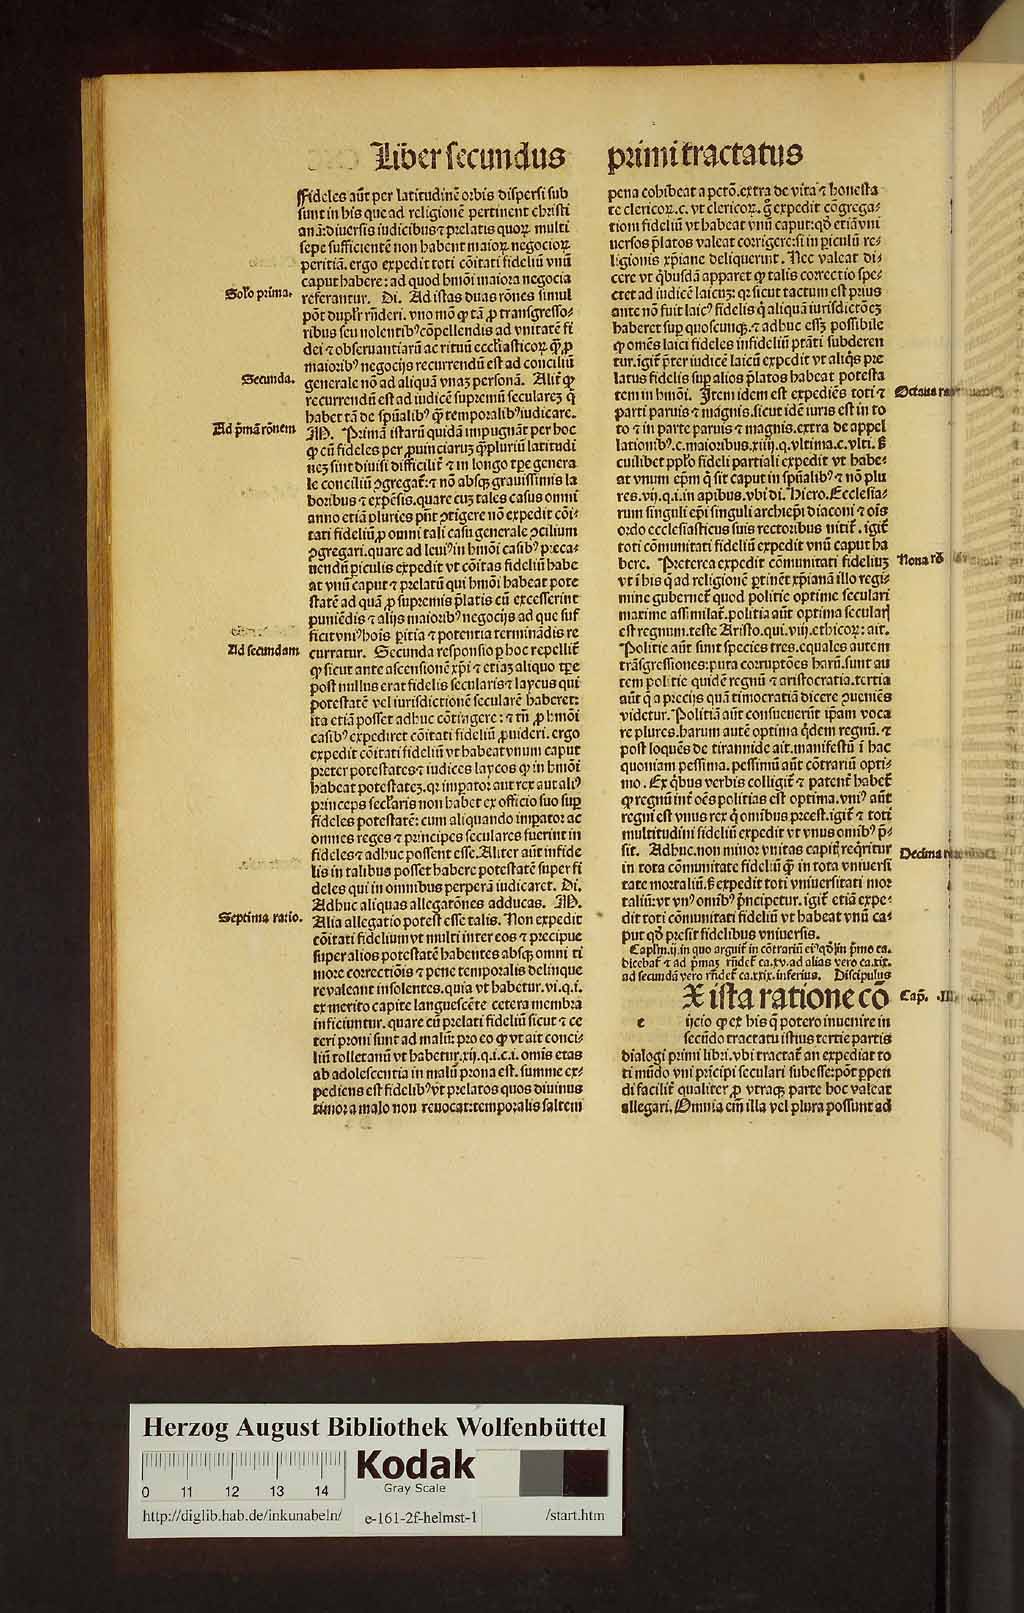 Liber secundus
primi tractatus
Fideles aūt per latitudinē orbis dispersi sub
sunt in his que ad religionē pertinent christi
anā: diuersis iudicibus ⁊ prelatis quoꝝ multi
sepe sufficientē non habent maioꝝ negocioꝝ
peritiā. ergo expedit toti cōitati fideliū vnū
caput habere: ad quod hmōi maiora negocia
Solo prima.
referantur. Di. Ad istas duas rōnes simul
pōt duplr rn̄deri. vno mō ꝙ tā ꝓ transgresso⸗
ribus seu nolentibꝰ cōpellendis ad vnitatē fi
dei ⁊ obseruantiarū ac rituū eccl̄iasticoꝝ ꝙ̄ ꝓ
maioribꝰ negocijs recurrendū est ad conciliū
Secunda.
generale nō ad aliquā vnaꝫ personā. Alit̄ ꝙ
recurrendū est ad iudicē supremū seculareꝫ q̇
habet tā de spūalibꝰ ꝙ̄ temporalibꝰ iudicare.
Ad pͥmā rōnem
M. Primā istarū quidā impugnāt per hoc
ꝙ cū fideles per ꝓuinciaruꝫ ꝙ̄ pluriū latitudi
neꝫ sint diuisi difficilit̄ ⁊ in longo tꝑe genera
le conciliū ꝯgregat̄: ⁊ nō absqꝫ grauissimis la
boribus ⁊ expēsis. quare cuꝫ tales casus omni
anno etiā pluries pn̄t ꝯtigere nō expedit cōi⸗
tati fideliū ꝓ omni tali casu generale ꝯcilium
ꝯgregari. quare ad leuiꝰ in hmōi casibꝰ preca⸗
uendū periculis expedit vt cōitas fideliū habe
at vnū caput ⁊ prelatū qui hmōi habeat pote
statē ad quā ꝓ supremis p̄latis cū excesserint
puniēdis ⁊ alijs maioribꝰ negocijs ad que suf
ficit vniꝰ hoīs peritia ⁊ potentia terminādis re
Ad secundam
curratur. Secunda responsio ꝑ hoc repellit̄
ꝙ sicut ante ascensionē xp̄i ⁊ etiaꝫ aliquo tꝑe
post nullus erat fidelis secularis ⁊ laycus qui
potestatē vel iurisdictionē secularē haberet:
ita etiā posset adhuc cōtingere: ⁊ tn̄ ꝓ hmōi
casibꝰ expediret cōitati fideliū ꝓuideri. ergo
expedit cōitati fideliū vt habeat vnum caput
preter potestates ⁊ iudices laycos ꝙ in hmōi
habeat potestateꝫ. qr imꝑator aut rex aut aliꝰ
princeps secl̄aris non habet ex officio suo suꝑ
fideles potestatē: cum aliquando imꝑator ac
omnes reges ⁊ principes seculares fuerint in
fideles ⁊ adhuc possent esse. Aliter aūt infide
lis in talibus posset habere potestatē super fi
deles qui in omnibus perperā iudicaret. Di.
Adhuc aliquas allegatōnes adducas. M.
Septima ratio.
Alia allegatio potest esse talis. Non expedit
cōitati fidelium vt multi inter eos ⁊ precipue
super alios potestatē habentes absqꝫ omni ti
more correctiōis ⁊ pene temporalis delinque
re valeant insolentes. quia vt habetur. vi. q. i.
ex merito capite languescēte cetera membra
inficiuntur. quare cū prelati fideliū sicut ⁊ ce
teri proni sunt ad malū: pro eo ꝙ vt ait conci⸗
liū tolletanū vt habetur. xij. q. i. c. i. omīs etas
ab adolescentia in malū prona est. summe ex⸗
pediens est fidelibꝰ vt prelatos quos diuinus
timor a malo non reuocat: temporalis saltem
pena cohibeat a pctō. extra de vita ⁊ honesta
te clericoꝝ. c. vt clericoꝝ. g̊ expedit cōgrega⸗
tioni fideliū vt habeat vnū caput: qd̄ etiā vni
uersos p̄latos valeat corrigere: si in ꝑiculū re⸗
ligionis xp̄iane deliquerint. Nec valeat di⸗
cere vt q̇busdā apparet ꝙ talis correctio spe⸗
ctet ad iudicē laicuꝫ: qr sicut tactum est prius
ante nō fuit laicꝰ fidelis q̇ aliquā iurisdictōeꝫ
haberet suꝑ quoscunqꝫ. ⁊ adhuc esset possibile
ꝙ omēs laici fideles infideliū ptāti subderen
tur. igit̄ p̄ter iudicē laicū expedit vt aliq̇s pre
latus fidelis suꝑ alios p̄latos habeat potesta
tem in hmōi. Item idem est expediēs toti ⁊
Octaua
parti paruis ⁊ magnis. sicut idē iuris est in to
to ⁊ in parte paruis ⁊ magnis. extra de appel
lationibꝰ. c. maioribus. xiiij. q. vltima. c. vlti. sꝫ
cuilibet ppl̄o fideli partiali expedit vt habe⸗
at vnum ep̄m q̇ sit caput in spūalibꝰ ⁊ nō plu
res. vij. q. i. in apibus. vbi di. Hiero. Ecclesia⸗
rum singuli ep̄i singuli archiep̄i diaconi ⁊ oīs
ordo ecclesiasticus suis rectoribus nitit̄. igit̄
toti cōmunitati fideliū expedit vnū caput ha
bere. Preterea expedit cōmunitati fideliuꝫ
Nona rō
vt ī his q̄ ad religionē ꝑtinēt xp̄ianā illo regi⸗
mine gubernet̄ quod politie optime seculari
maxime assimilat̄. politia aūt optima seculari
est regnum. teste Aristo. qui. viij. ethicoꝝ: ait.
Politie aūt sunt species tres. equales autem
trāsgressiones: puta corruptōes harū. sunt au
tem politie quidē regnū ⁊ aristocratia. tertia
aūt q̄ a precijs quā timocratiā dicere ꝯueniēs
videtur. Politiā aūt consueuerūt ip̄am voca
re plures. harum autē optima q̇dem regnū. ⁊
post loquēs de tirannide ait. manifestū ī hac
quoniam pessima. pessimū aūt cōtrariū opti⸗
mo. Ex q̇bus verbis colligit̄ ⁊ patent̄ habet̄
ꝙ regnū int̄ oēs politias est optima. vniꝰ aūt
regni est vnus rex q̇ omnibus preest. igit̄ ⁊ toti
multitudini fideliū expedit vt vnus omībꝰ p̄⸗
sit. Adhuc. non minor vnitas capit̄ req̇ritur
Decima
in tota cōmunitate fideliū ꝙ̄ in tota vniuersi
tate mortaliū. sꝫ expedit toti vniuersitati mor
taliū: vt vnꝰ omībꝰ p̄ncipetur. igit̄ etiā expe⸗
dit toti cōmunitati fideliū vt habeat vnū ca⸗
put qd̄ presit fidelibus vniuersis.
Caplm. ij. in quo arguit̄ in cōtrariū eiꝰ qd̄ in pͥmo ca.
dicebat̄ ⁊ ad pͥmaꝫ rn̄det̄ ca. xv. ad alias vero ca. xix.
ad secundā vero rn̄det̄ ca. xxix. inferius. Discipulus
X ista ratione cō
Cap̄.
e
ijcio ꝙ ex his q̄ potero inuenire in
secūdo tractatu istius tertie partis
dialogi primi libri. vbi tractat̄ an expediat to
ti mūdo vni prīcipi seculari subesse: pōt ꝑpen
di facilit̄ qualiter ꝓ vtraqꝫ parte hoc valeat
allegari. Omnia em̄ illa vel plura possunt ad
Herzog August Bibliothek Wolfenbüttel
Kodak
Gray Scale
0 11 12 13 14
http://diglib.hab.de/inkunabeln/ e-161-2f-helmst-1 /start.htm